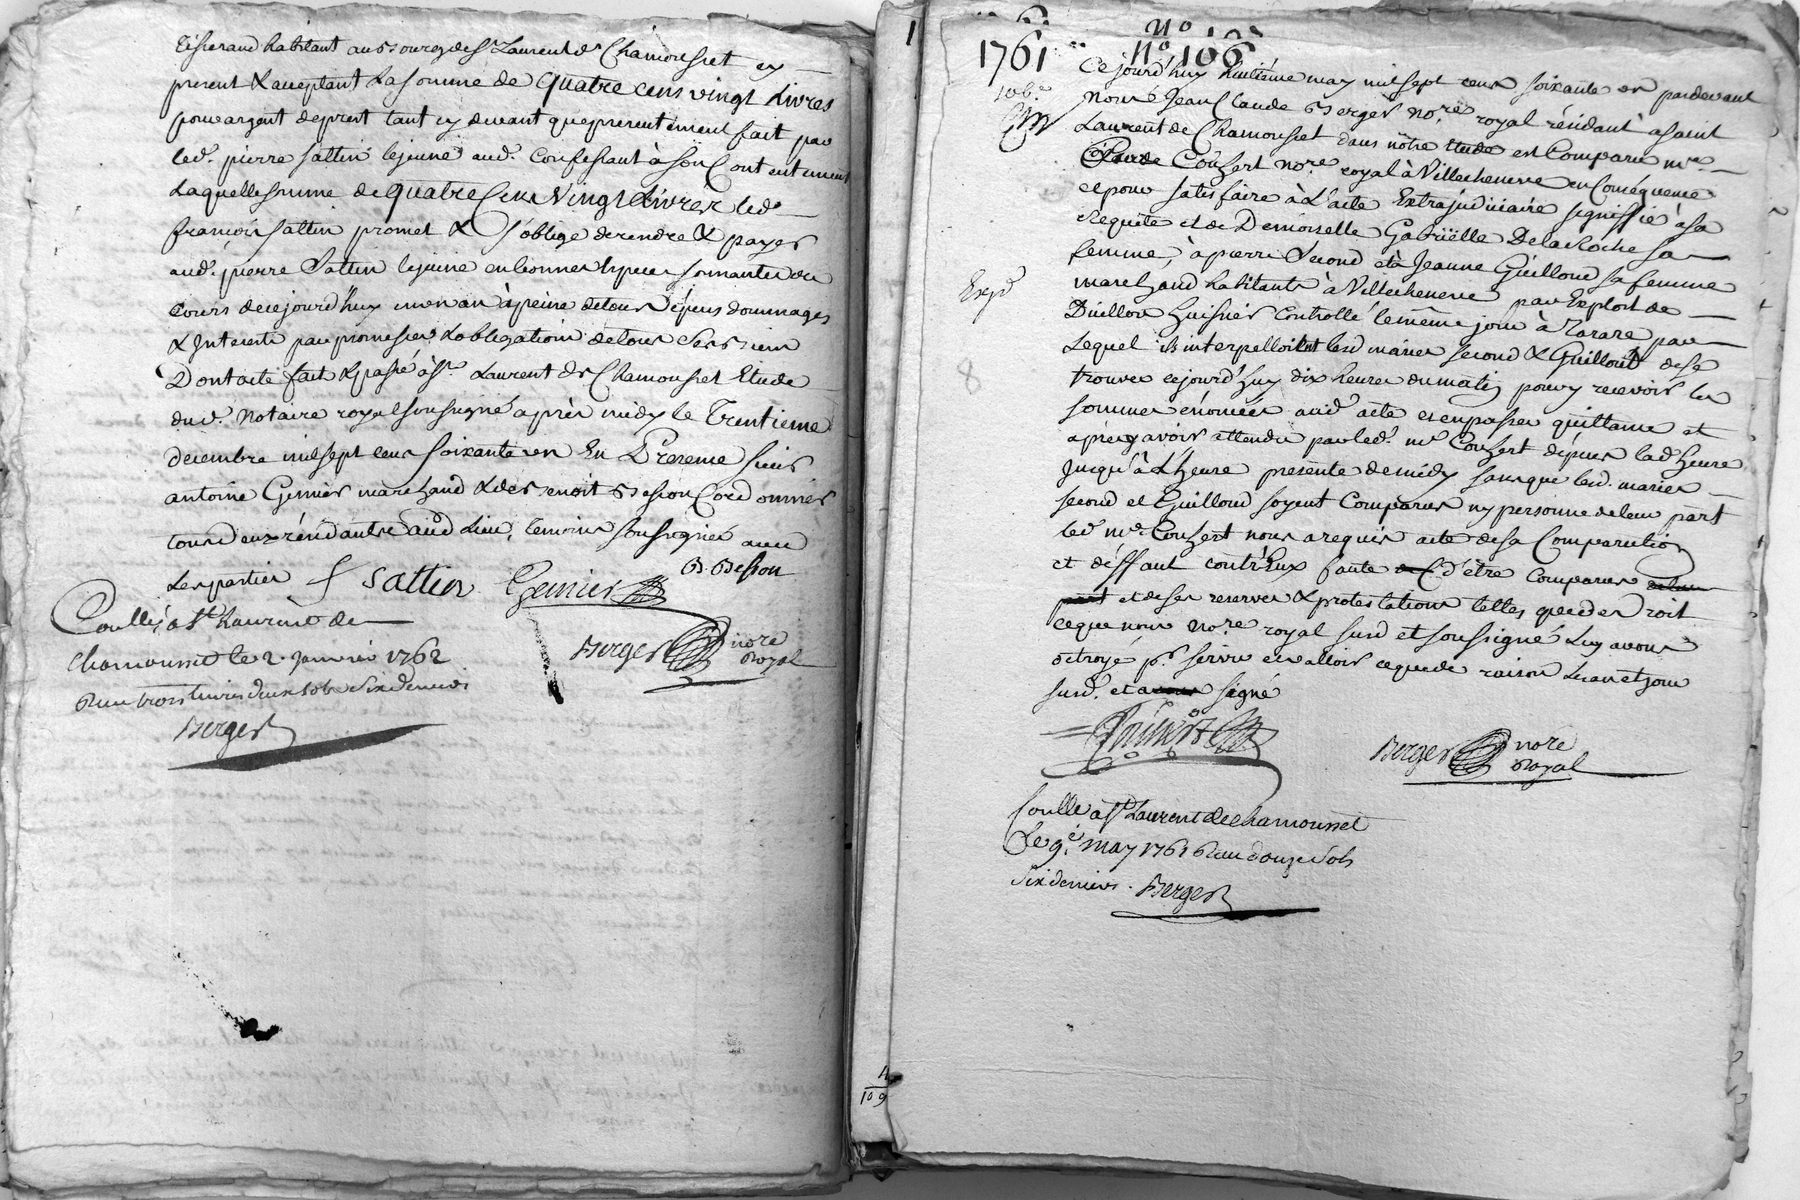 tisserand habitant au Bourg de St Laurent de Chamousset cy
present & aceptant La somme de quatre cens vingt Livres
pour argent de prest tant cy devant que presentement fait par
led. pierre sattin lejeune aud. Confessant à son Contentement
Laquelle somme de quatre Cens Vingt Livres led.
françois sattin promet & s'oblige de rendre & payer
aud. pierre Sattin lejeune en bonnes espèces sonnantes au
cours de cejourd'huy en un an à peine de tous dépens dommages
& Interets par promesses & obligations de tous ses biens
Dont acte fait & passé à St Laurent de Chamousset Etude
dud. Notaire royal soussigné après midy le Trentieme
decembre mil sept cens soixante un En Presence sieur
antoine Genier marchand & de Benoit Besson Cordonnier
tous deux résidants aud Lieu, temoins soussignés avec
Les parties f sattin Genier B. Besson
Conllé, a St Laurent de
chamousset le 2. Janvier 1762
Reçu trois livres deux sols six deniers
Berger
Berger nore
Royal
1761 No
No 106
Ce jourd'huy huitième may mil sept cens soixante un pardevant
Nous Jean Claude Berger nore royal résidant à saint
Laurent de Chamousset dans nôtre étude est Comparu me
Claude Couhert nore royal à Villecheneve en Conséquence
et pour satisfaire à L'acte Extrajudiciaire signiffié à sa
Requête et de Demoiselle Gabriëlle Delaroche sa
femme, à pierre Second et à Jeanne Guilloud sa femme
marchand habitants à Villecheneve par Exploit de
Duillon huissier Controllé le même jour à Tarare par
Lequel ils interpelloient lesd mariés second & Guilloud de se
trouver cejourd'huy dix heures du matin pour y recevoir les
sommes énoncées aud acte et en passer quittance et
après y avoir attendu par led. me Couhert dépuis lad heure
Jusqu'à L'heure presente de midy sans que lesd. mariés
second et Guilloud soyent Comparus ny personne de leur part
led me Couhert nous a requis acte de sa Comparution
et déffaut contr'Eux faute d'être Comparus
et de ses reserves & protestations telles que de droit
ce que nous Nore royal susd et soussigné Luy avons
octroyé pr servir et valloir ce que de raison Les an et jour
susd. et a signé
Exped
8
Couhert
Berger nore
Royal
Conllé a St Laurent de chamousset
Le 9e. may 1761 Reçu douze sols
six deniers. Berger
4
109